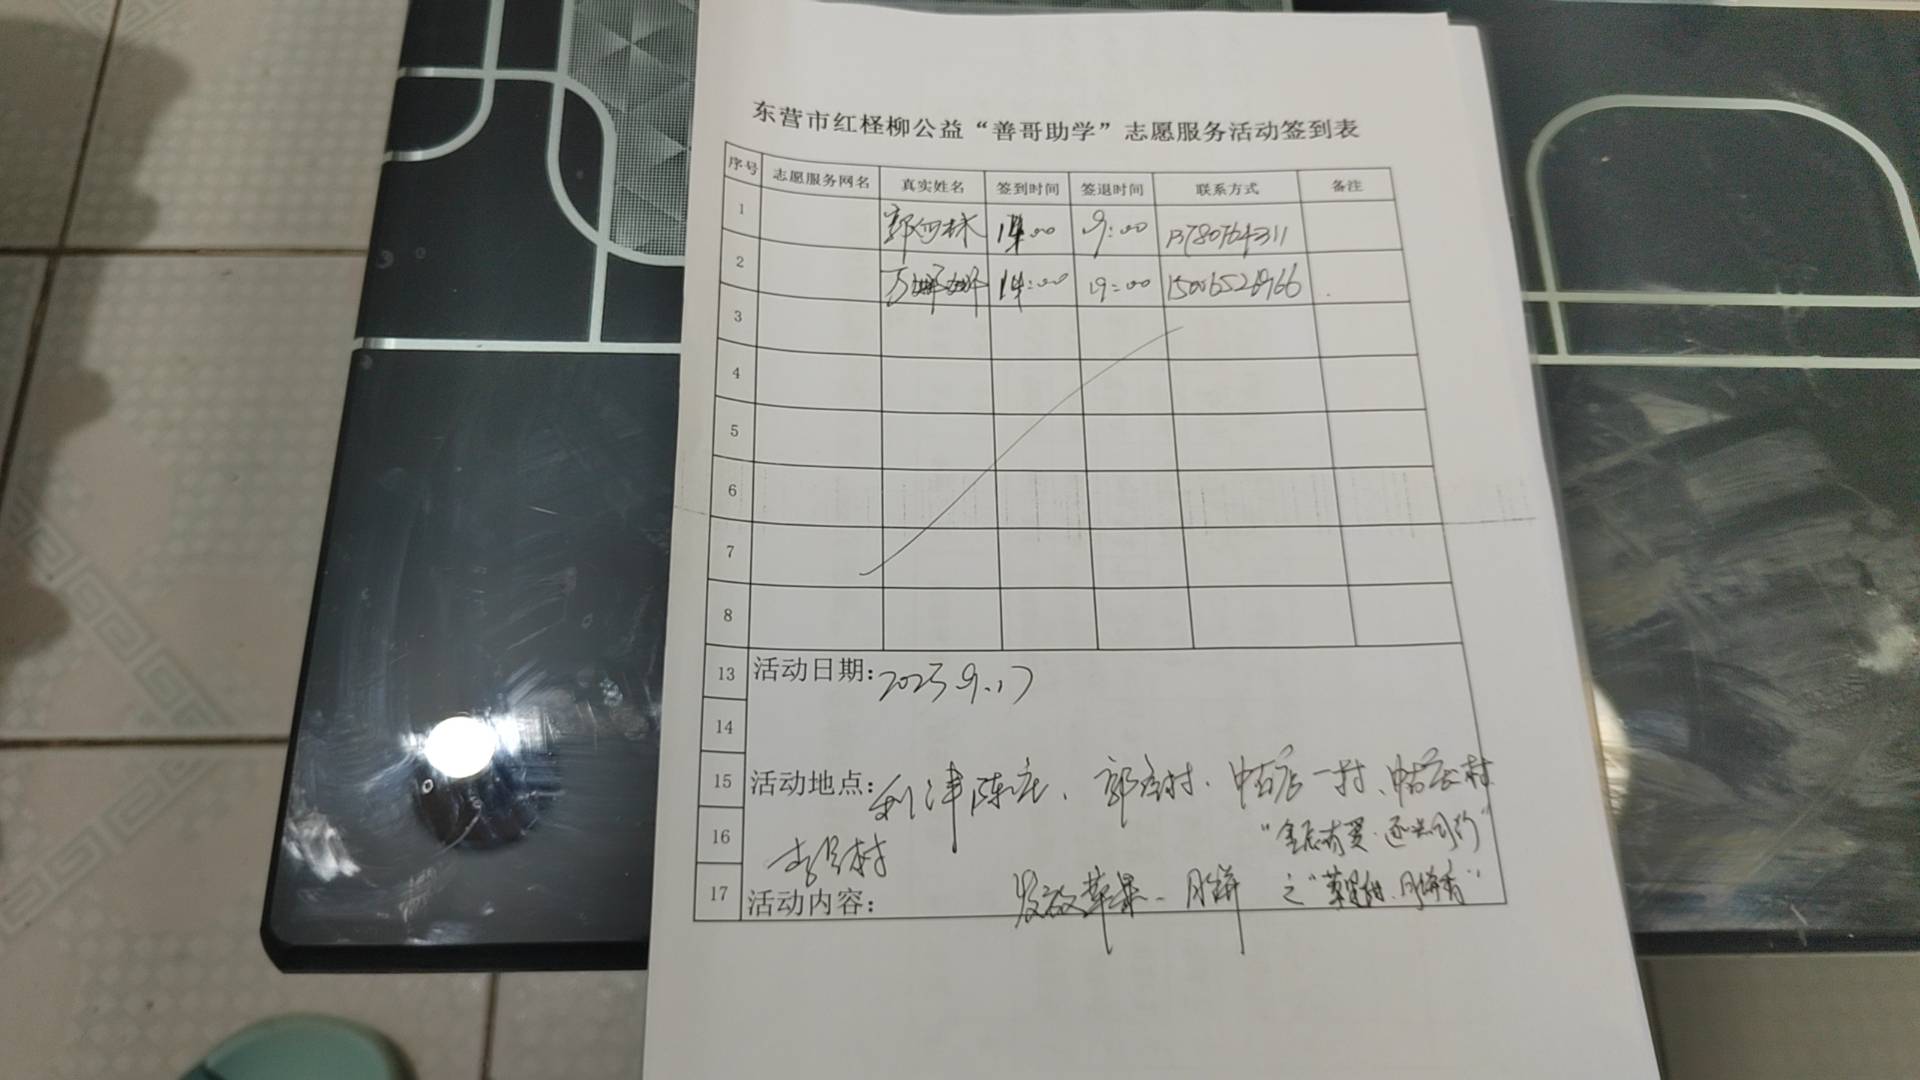 东营市红柽柳公益“善哥助学”志愿服务活动签到表
序号 志愿服务网名 真实姓名 签到时间 签退时间 联系方式 备注
1 14:00 19:00 13780764311
2 万娜娜 14:00 19:00
3
4
5
6
7
8
13 活动日期: 2023.9.17
14
15 活动地点: 利津陈庄、郭 村、中古店一村、中古店 村
16 村
17 活动内容: 发放苹果、月饼 之“苹果甜、月饼香”